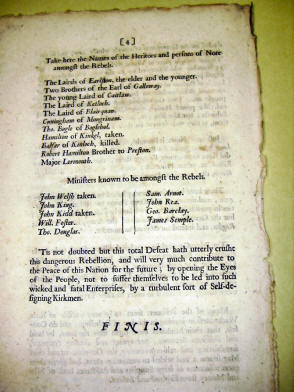 [ 4 ]
Take here the Names of the Heritors and persons of Note
amongst the Rebels.
The Lairds of Earlston, the elder and the younger.
Two Brothers of the Earl of Galloway.
The young Laird of Caitlaw.
The Laird of Ketloch.
The Laird of
Cuningham of Mongrinam.
Tho. Bogle of Boghshol.
Hamilton of Kinkel, taken.
Balfor of Kinloch, killed.
Robert Hamilton Brother to Preston.
Major Learmonth.
Ministers known to be amongst the Rebels.
John Welsh taken.
John King.
John Kidd taken.
Will. Foster.
Tho. Douglas.
Sam. Arnot.
John Rea.
Geo. Barclay.
James Semple.
'Tis not doubted but this total Defeat hath utterly crusht
this dangerous Rebellion, and will very much contribute to
the Peace of this Nation for the future; by opening the Eyes
of the People, not to suffer themselves to be led into such
wicked and fatal Enterprises, by a turbulent sort of Self-de-
signing Kirkmen.
FINIS.